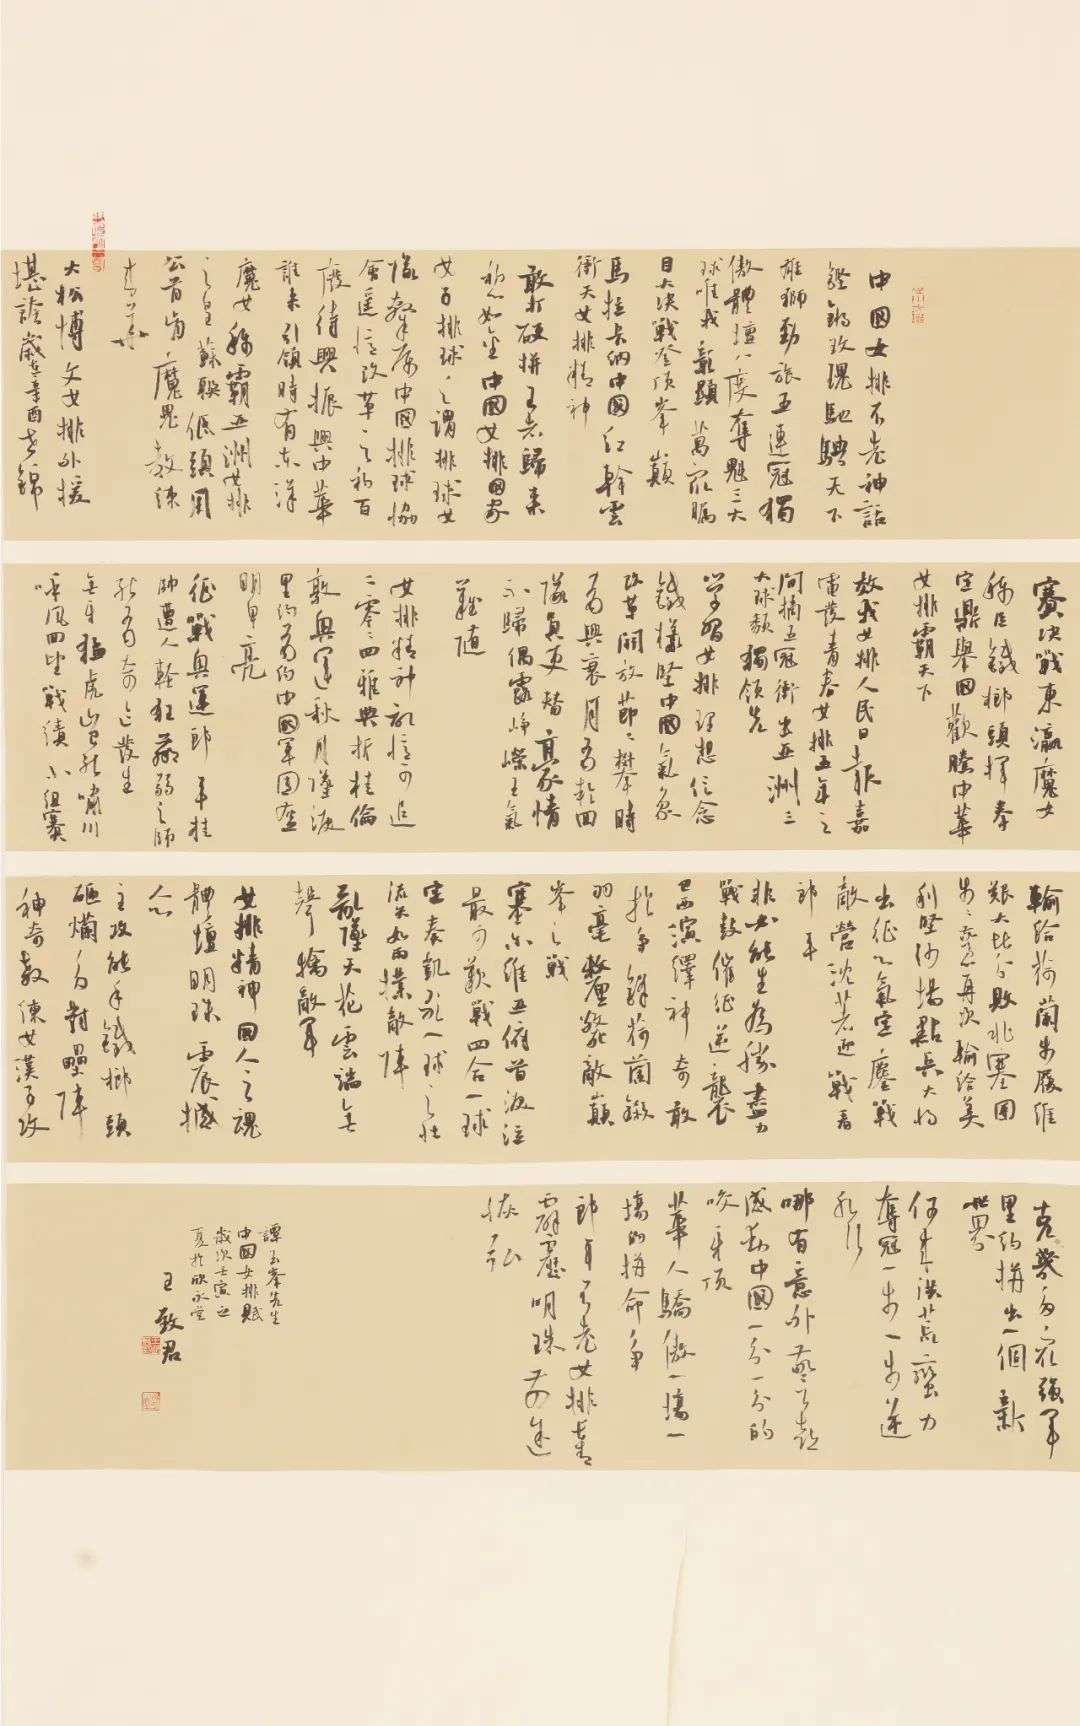 中國女排不老神話
鏗鏘玫瑰馳騁天下
雄獅勁旅五連冠獨
傲體壇八度奪魁三大
球唯我彰顯萬眾矚
目大決戰登頂峯巔
馬拉卡納中國紅幹雲
衝天女排精神
敢打硬拼王者歸來
初心如金中國女排國家
女子排球之謂排球女
隊隸屬中國排球協
會遙憶改革之初百
廢待興振興中華
誰來引領時有東洋
魔女稱霸亞洲女排
之皇蘇聯低頭
公首肯魔鬼教練
大松博文女排外援
堪誇歲在辛酉
賽決戰東瀛魔女
稱臣鐵榔頭揮拳
定鼎舉國歡騰中華
女排霸天下
放我女排人民日報嘉
電漢青春女排五年之
間摘五冠衝出亞洲三
大球類獨領先
學習女排理想信念
鐵樣堅中國氣象
改革開放節節攀時
有興衰月有虧四
隊員更替豪情
不歸偶露崢嶸王氣
難值
女排精神記憶可追
二零零四雅典折桂倫
敦奧運秋月隱波
里約有約中國軍團盔
明甲亮
征戰奧運郎平挂
帥遭人輕狂羸弱之師
能有奇跡發生
無牙猛虎山已能嘯川
呼風四雄戰績小組賽
輸給荷蘭步履維
艱大比分敗北塞爾
步步驚再次輸給美
利堅沙場點兵大將
出征心氣定鏖戰
敵營沈著迎戰看
郎平
非女能生為勝盡力
戰鼓催征逆襲
巴西演繹神奇敢
於爭鋒荷蘭鏖
羽毫釐斃敵巔
峯之戰
塞爾維亞俯首淚泣
最可歎戰四合一球
定奏凱歌一球之壯
流矢如雨撲敵陣
亂墜天花雲端無
聲擒敵軍
女排精神國人之魂
體壇明珠震撼
人心
主攻能手鐵榔頭
砸爛多對壘陣
神奇教練女漢子攻
克幾多冠強軍
里約拼出一個新
世界
何來洪荒蠻力
奪冠一步一步逆
水行
哪有意外驚與喜
感動中國一分一分的
咬牙頂
華人驕傲一場一
場的拼命爭
郎平不老女排青
霹靂明珠前途
恢弘
譚玉琴先生
中國女排賦
歲次壬寅之
夏於欣永堂
王致君